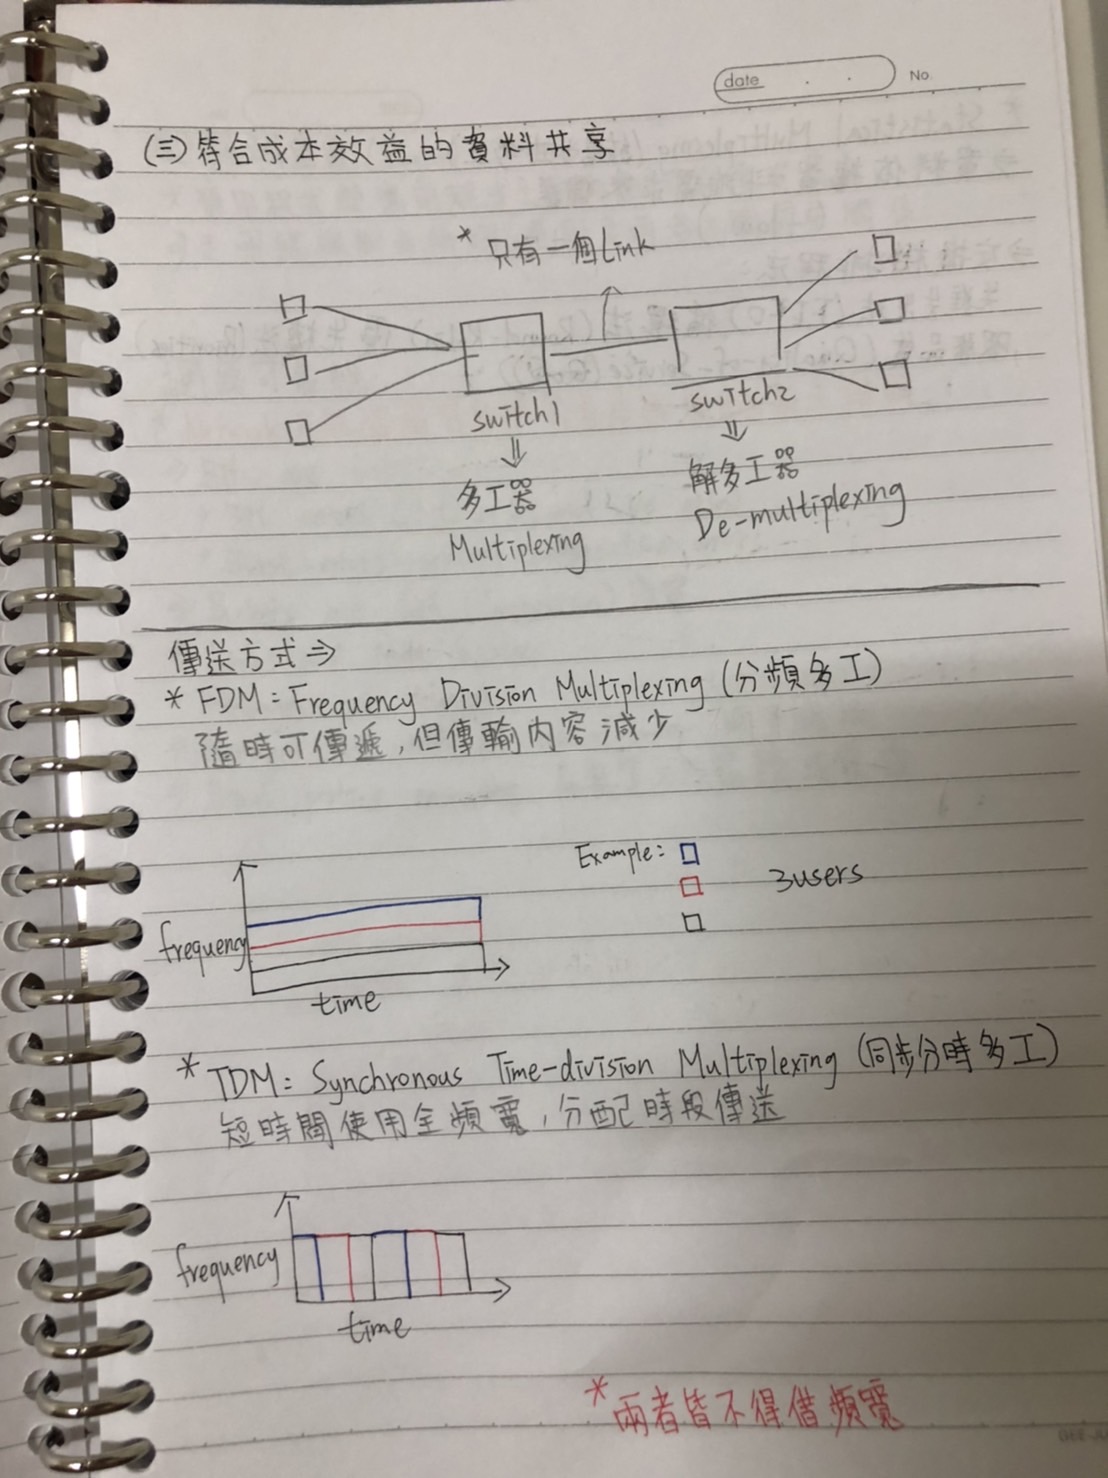 date . . No.
(三)符合成本效益的資料共享
* 只有一個Link
switch1
switch2
⇓
⇓
多工器
Multiplexing
解多工器
De-multiplexing
傳送方式⇒
* FDM = Frequency Division Multiplexing (分頻多工)
隨時可傳遞,但傳輸內容減少
Example:
3users
frequency
time
* TDM: Synchronous Time-division Multiplexing (同步分時多工)
短時間使用全頻寬,分配時段傳送
frequency
time
*兩者皆不得借頻寬